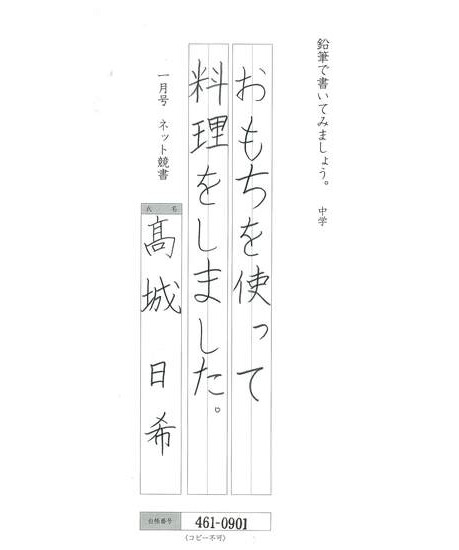 鉛筆で書いてみましょう。 中学
おもちを使って
料理をしました。
一月号 ネット競書
氏名
髙城 日希
台帳番号 461-0901
(コピー不可)